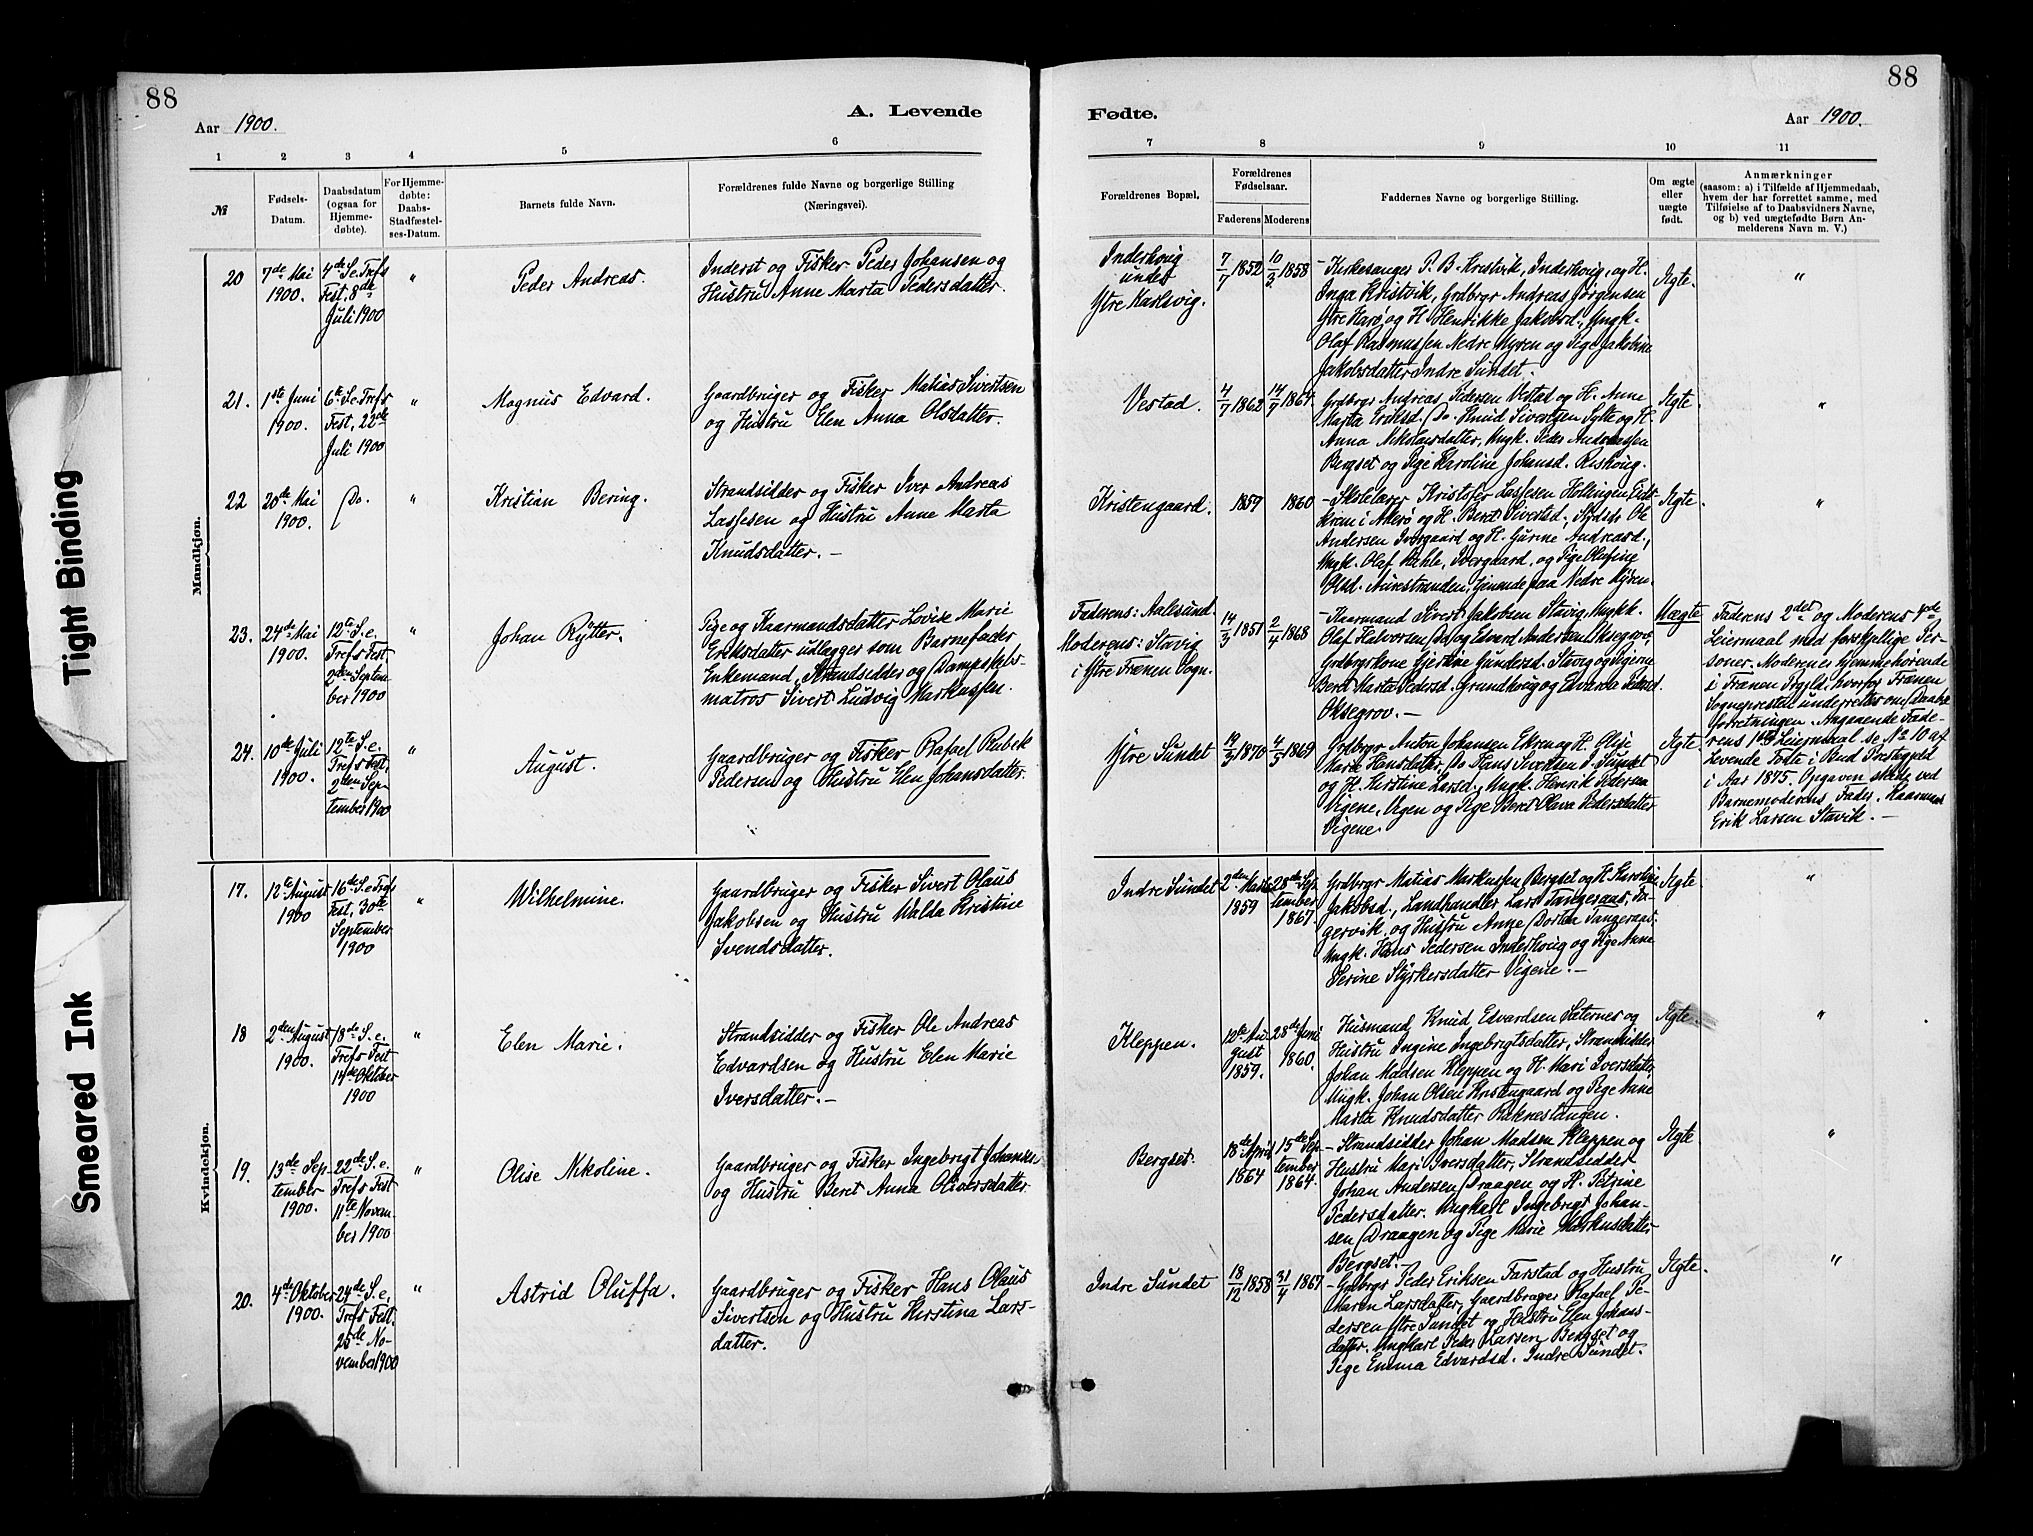 88
A. Levende
Aar 1900.
1 2 3 4 5 6
№
Fødsels-
Datum.
Daabsdatum
(ogsaa for
Hjemme-
døbte).
For Hjemme-
døbte:
Daabs-
Stadfæstel-
ses-Datum.
Barnets fulde Navn.
Forældrenes fulde Navne og borgerlige Stilling
(Næringsvei).
Mandkjøn.
20
7de Mai
1900.
4de S. e. Trefs
Fest, 8de
Juli 1900
"
Peder Andreas.
Inderst og Fisker Peder Johansen og
Hustru Anne Marta Pedersdatter.
21.
1ste Juni
1900.
6te S. e. Trefs
Fest, 22de
Juli 1900
"
Magnus Edvard.
Gaardbruger og Fisker Matias Sivertsen
og Hustru Elen Anna Olsdatter.
22
20de Mai
1900.
Do.
"
Kristian Bering.
Strandsidder og Fisker Iver Andreas
Lassesen og Hustru Anne Marta
Knudsdatter. —
23.
24de Mai
1900.
12te S. e.
Trefs Fest
2den Septem-
ber 1900
"
Johan Rytter.
Pige og Kaarmandsdatter Lovise Marie
Eriksdatter udlægger som Barnefader
Enkemand, Strandsidder og Dampskibs-
matros Sivert Ludvig Markussen.
24.
10de Juli
1900.
12te S. e.
Trefs Fest,
2den Sep-
tember 1900
"
August.
Gaardbruger og Fisker Rafael Rubek
Pedersen og Hustru Elen Johansdatter.
Kvindekjøn.
17.
12te August
1900
16de S. e. Trefs
Fest, 30te
September
1900
"
Wilhelmine.
Gaardbruger og Fisker Sivert Olaus
Jakobsen og Hustru Valda Kristine
Svendsdatter.
18
2den August
1900.
18de S. e.
Trefs Fest
14de Oktober
1900
"
Elen Marie.
Strandsidder og Fisker Ole Andreas
Edvardsen og Hustru Elen Marie
Iversdatter. —
19.
13de Sep-
tember
1900.
22de S. e.
Trefs Fest
11te Novem-
ber 1900
"
Olise Nikoline.
Gaardbruger og Fisker Ingebrigt Johanss.
og Hustru Beret Anna Oliversdatter.
20.
4de Oktober
1900.
24de S. e.
Trefs Fest.
25de No-
vember 1900
"
Astrid Oluffa.
Gaardbruger og Fisker Hans Olaus
Sivertsen og Hustru Kirstina Lars-
datter.
88
Fødte.
Aar 1900.
7 8 9 10 11
Forældrenes Bopæl,
Forældrenes
Fødselsaar.
Faderens Moderens
Faddernes Navne og borgerlige Stilling.
Om ægte
eller
uægte
født.
Anmærkninger
(saasom: a) i Tilfælde af Hjemmedaab,
hvem der har forrettet samme, med
Tilføielse af to Daabsvidners Navne,
og b) ved uægtefødte Børn An-
melderens Navn m. V.)
Inderhovig
under
Ytre Harlsvig.
7/7 1852
10/2 1858
— Kirkesanger P. B. Krestvik, Inderhovig, og H.
Inga Kristvik, Grdbrgr Andreas Jørgensen
Ytre Harø, og H. Henrikke Jakobsd., Ungk.
Olaf Rasmussen Nedre Myren og Pige Jakobine
Jakobsdatter Indre Sundet.
Ægte.
"
Vestad.
4/7 1862
14/7 1864
Grdbrgr Andreas Pedersen Vestad og H. Anne
Marta Eriksd. Do. Knud Sivertsen Sylte og H.
Anna Nikolaisdatter, Ungk. Peder Andreassen
Bergset og Pige Karoline Johansd. Rishovig.
Ægte.
"
Kristengaard.
1859
1860
— Skolelærer Kristofer Lassesen Hollingen Eids-
krem i Akerø og H. Beret Sivertsd., Stdsdr Ole
Andersen Ivergaard og H. Gurine Andreasd.,
Ungk. Olaf Røhle, Ivergaard, og Pige Olufine
Olsd. Aurestranden, tjenende paa Nedre Myren.
Ægte.
"
Faderens: Aalesund.
Moderens: Stavig
i Ytre Frænen Sogn.
14/3 1851
2/4 1868
— Kaarmand Sivert Jakobsen Stavig, Ungk.
Olaf Halvorsen Do og Edvard Andersen Oksegrov,
Grdbrgrkone Gjertine Gundersd. Stavig og Pigerne
Beret Marta Pedersd. Grundhovig og Edvarda Pedersd
Oksegrov. —
Uægte.
Faderens 2det og Moderens 1ste
Leiermaal med forskjellige Per-
soner. Moderen er hjemmehørende
i Frænen Prgjld., hvorfor Frænen
Sogneprest er underrettet om Daabs-
forretningen. Angaaende Fade-
rens 1ste Leiermaal se No 10 af
Levende Fødte i Bud Prestegjeld
i Aar 1875. Opgaven skede ved
Barnemoderens Fader, Kaarmand
Erik Larsen Stavik. —
Ytre Sundet
19/3 1870
4/5 1869
Grdbrgr Anton Johansen Ekren og H. Olise
Marie Hansdatter, Do Hans Sivertsen I. Sundet
og H. Kirstine Larsd., Ungk. Henrik Pedersen
Vigene, Vegen og Pige Beret Olava Pedersdatter
Vigene.
Ægte
Indre Sundet
2den Marts
1859
28de Sep-
tember
1867
Grdbrgr Matias Markussen Bergset og H. Karoline
Jakobsd., Landhandler Lars Tangeraas, Fa-
gervik, og Hustru Anne Dortea Tangeraas.
Ungk. Hans Pedersen Inderhovig og Pige Anne
Serine Styrkersdatter Vigene. —
Ægte.
"
Kleppen.
12te Au-
gust
1859.
28de Juni
1860.
Husmand Knud Edvardsen Sæternes og
Hustru Ingine Ingebrigtsdatter, Strandsidder
Johan Madsen Kleppen og H. Mari Iversdatter,
Ungk. Johan Olsen Kristengaard og Pige Anne
Marta Knudsdatter Raknestangen.
Ægte.
"
Bergset.
18de April
1864
15de Sep-
tember
1864.
— Strandsidder Johan Madsen Kleppen og
Hustru Mari Iversdatter, Strandsidder
Johan Andersen Draagen og H. Petrine
Pedersdatter. Ungkarl Ingebrigt Johan-
sen Draagen og Pige Marie Markusdatter
Bergset.
Ægte.
"
Indre Sundet
18/12 1858
31/4 1867
— Grdbrgr Peder Eriksen Farstad og Hustru
Maren Larsdatter, Gaardbruger Rafael Pe-
dersen Ytre Sundet og Hustru Elen Johans-
datter. Ungkarl Peder Larsen Bergset og
Pige Emma Edvardsd. Indre Sundet.
Ægte.
"
Tight Binding
Smeared Ink